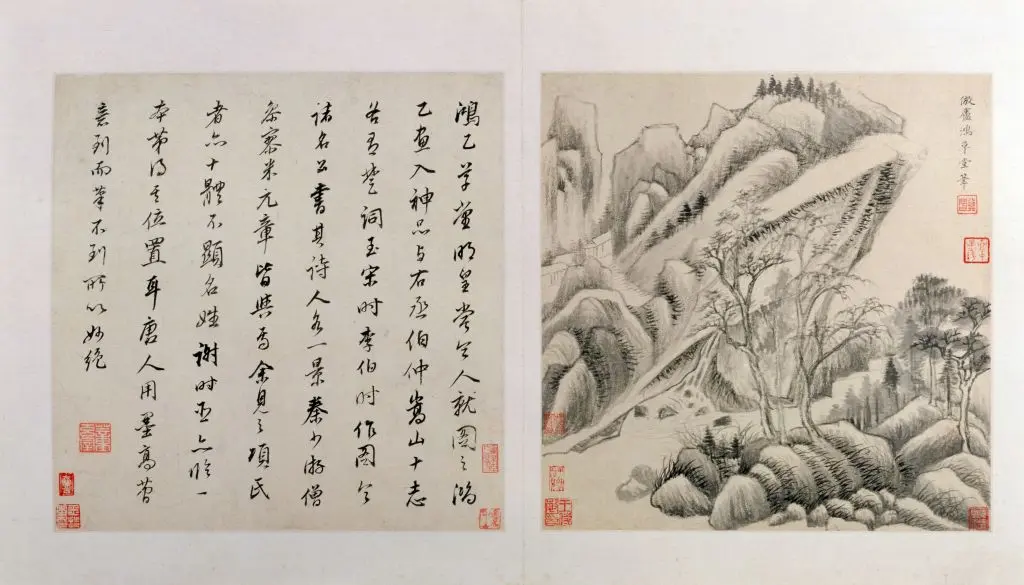 倣盧鴻草堂筆
鴻乙草堂明皇嘗令人就圖之鴻
乙畫入神品与右丞伯仲嵩山十志
各有楚詞至宋时李伯时作圖令
諸名公書其詩人各一景秦少游僧
參寥米元章皆與焉余見之項氏
者亦十體不顯名姓謝时臣亦臨一
本苐得其位置耳唐人用墨高
意到而筆不到所以妙絕